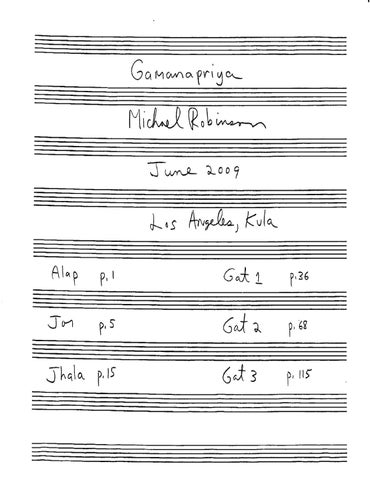 Gamanapriya
Michael Robinson
June 2009
Los Angeles, Kula
Alap p. 1 Gat 1 p. 36
Jor p. 5 Gat 2 p. 68
Jhala p. 15 Gat 3 p. 115